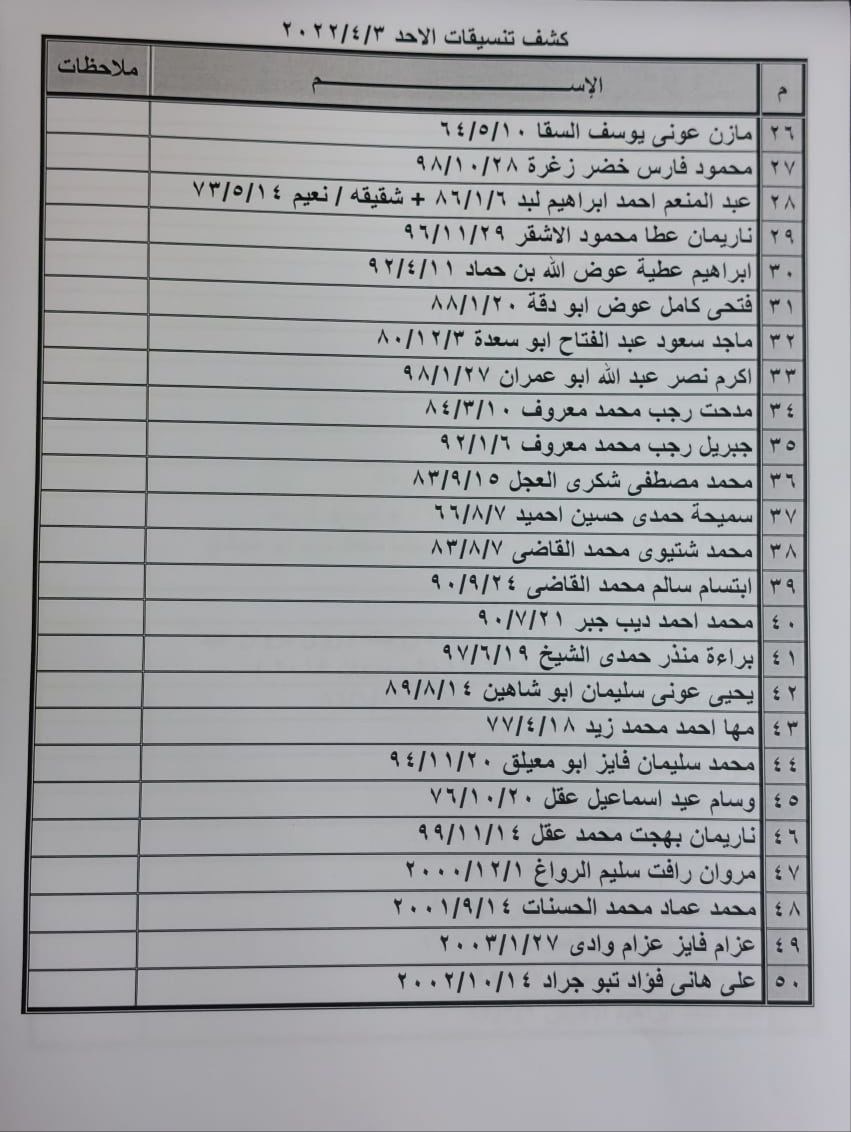 كشف تنسيقات الاحد ٢٠٢٢/٤/٣
م الإســـــــــم ملاحظات
٢٦ مازن عونى يوسف السقا ٦٤/٥/١٠
٢٧ محمود فارس خضر زغرة ٩٨/١٠/٢٨
٢٨ عبد المنعم احمد ابراهيم لبد ٨٦/١/٦ + شقيقه / نعيم ٧٣/٥/١٤
٢٩ ناريمان عطا محمود الاشقر ٩٦/١١/٢٩
٣٠ ابراهيم عطية عوض الله بن حماد ٩٢/٤/١١
٣١ فتحى كامل عوض ابو دقة ٨٨/١/٢٠
٣٢ ماجد سعود عبد الفتاح ابو سعدة ٨٠/١٢/٣
٣٣ اكرم نصر عبد الله ابو عمران ٩٨/١/٢٧
٣٤ مدحت رجب محمد معروف ٨٤/٣/١٠
٣٥ جبريل رجب محمد معروف ٩٢/١/٦
٣٦ محمد مصطفى شكرى العجل ٨٣/٩/١٥
٣٧ سميحة حمدى حسين احميد ٦٦/٨/٧
٣٨ محمد شتيوى محمد القاضى ٨٣/٨/٧
٣٩ ابتسام سالم محمد القاضى ٩٠/٩/٢٤
٤٠ محمد احمد ديب جبر ٩٠/٧/٢١
٤١ براءة منذر حمدى الشيخ ٩٧/٦/١٩
٤٢ يحيى عونى سليمان ابو شاهين ٨٩/٨/١٤
٤٣ مها احمد محمد زيد ٧٧/٤/١٨
٤٤ محمد سليمان فايز ابو معيلق ٩٤/١١/٢٠
٤٥ وسام عيد اسماعيل عقل ٧٦/١٠/٢٠
٤٦ ناريمان بهجت محمد عقل ٩٩/١١/١٤
٤٧ مروان رافت سليم الرواغ ٢٠٠٠/١٢/١
٤٨ محمد عماد محمد الحسنات ٢٠٠١/٩/١٤
٤٩ عزام فايز عزام وادى ٢٠٠٣/١/٢٧
٥٠ على هانى فؤاد تبو جراد ٢٠٠٢/١٠/١٤